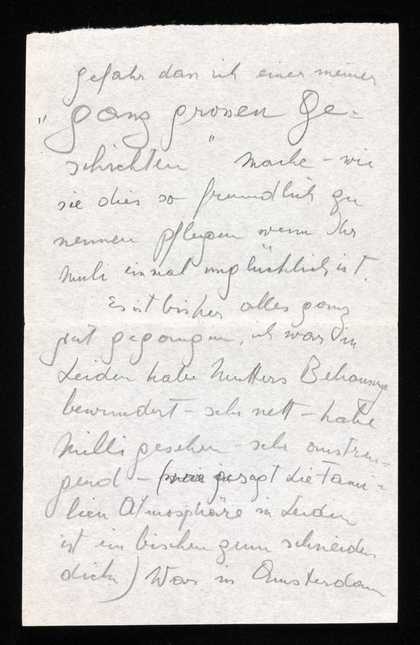 gefahr dass ich einer meiner
"ganz grossen Ge-
schichten" mache - wie
sie dies so freundlich zu
nennen pflegen wenn Ihr
Muli einmal unglücklich ist.
Es ist bisher alles ganz
gut gegangen, ich war in
Leiden habe Mutters Behausung
bewundert - sehr nett - habe
Milli gesehen - sehr anstren-
gend - (wie gesagt die Fami-
lien Atmosphäre in Leiden
ist ein bischen zum schneiden
dick) War in Amsterdam